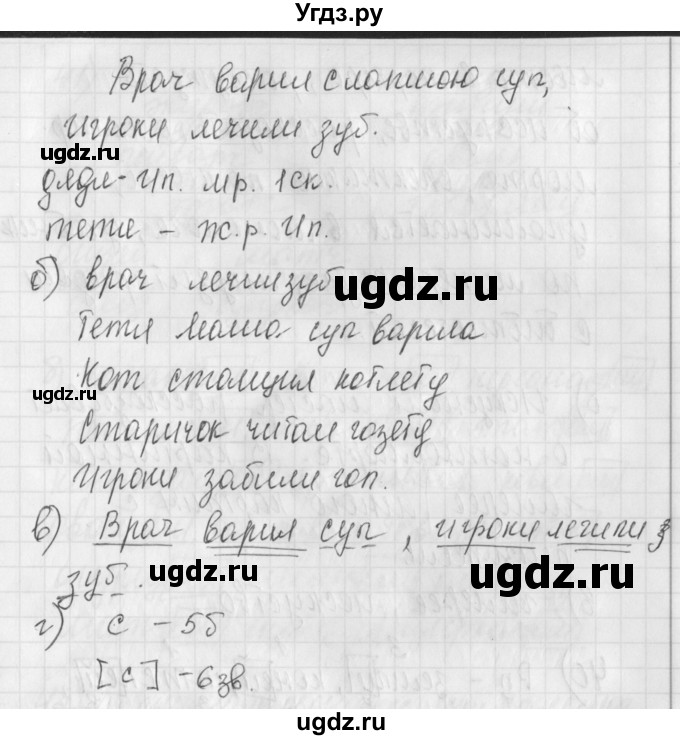 Угдз.ру
Врач варил с лапшою суп,
Игроки лечили зуб.
ugdz.ru
дядя - Ип. мр. 1ск.
ugdz.ru
тетя - ж.р. Ип.
б) врач лечил зуб
ugdz.ru
Тетя Маша суп варила
ugdz.ru
Кот стащил котлету
Старичок читал газету
Игроки забили гол.
в) Врач варил суп, игроки лечили
зуб.
ugdz.ru
ugdz.ru
г) с - 5б
[с] - 6зв.
ugdz.ru
ugdz.ru